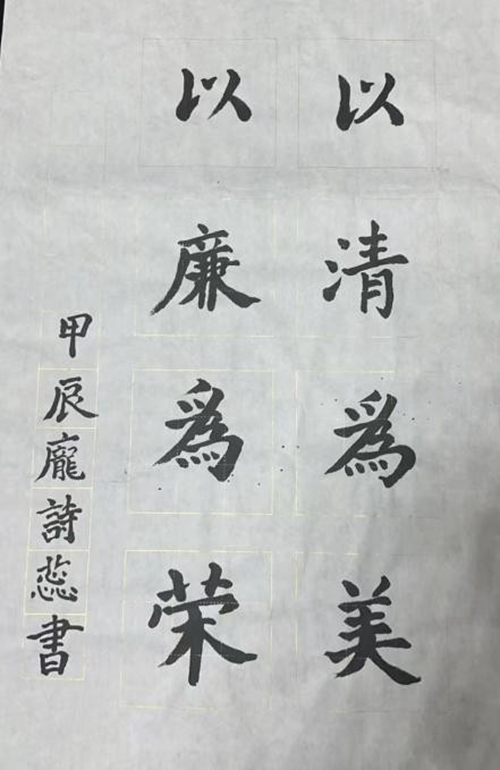 以清爲美
以廉爲荣
甲辰龐詩蕊書